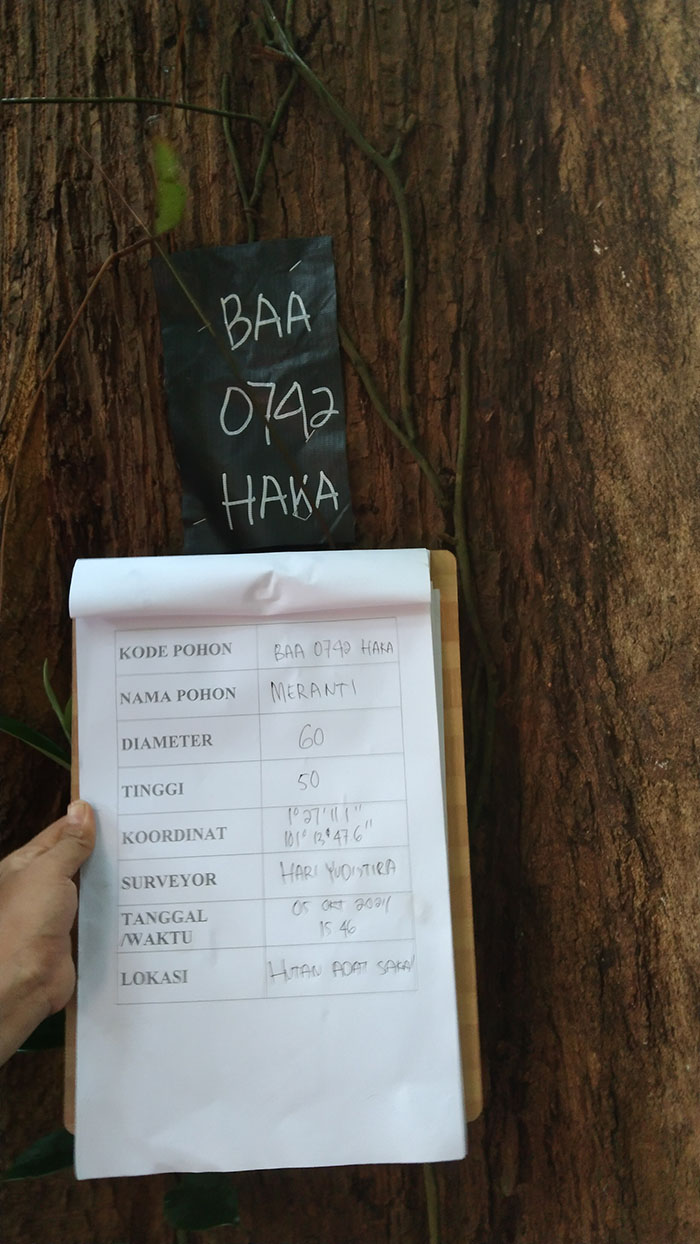 BAA
0742
HAKA
KODE POHON BAA 0742 HAKA
NAMA POHON MERANTI
DIAMETER 60
TINGGI 50
KOORDINAT 1° 27' 11.1"
101° 13' 47.6"
SURVEYOR HARI YUDISTIRA
TANGGAL 05 OKT 2021
/WAKTU 15 46
LOKASI HUTAN ADAT SAKAI